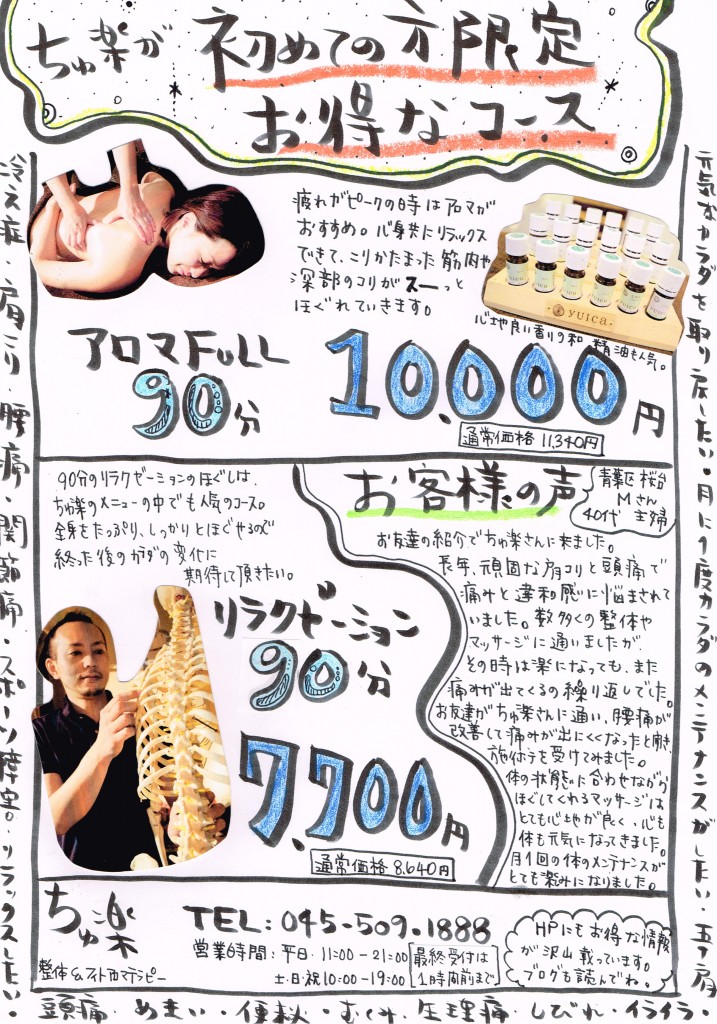 ちゅ楽が 初めての方限定
お得なコース
疲れがピークの時はアロマが
おすすめ。心身共にリラックス
できて、こりかたまった筋肉や
深部のコリがスーっと
ほぐれていきます。
yuica
心地良い香りの和精油も人気。
アロマFULL
90分
10,000円
通常価格 11,340円
90分のリラクゼーションのほぐしは、
ちゅ楽のメニューの中でも人気のコース。
全身をたっぷり、しっかりとほぐせるので
終った後のカラダの変化に
期待して頂きたい。
リラクゼーション
90分
7,700円
通常価格 8,640円
お客様の声
青葉区 桜台
Mさん
40代 主婦
お友達の紹介でちゅ楽さんに来ました。
長年、頑固な肩コリと頭痛で
痛みと違和感に悩まされて
いました。数多くの整体や
マッサージに通いましたが、
その時は楽になっても、また
痛みが出てくるの繰り返しでした。
お友達がちゅ楽さんに通い、腰痛が
改善して痛みが出にくくなったと聞き、
施術を受けてみました。
体の状態に合わせながら
ほぐしてくれるマッサージは
とても心地が良く、心も
体も元気になってきました。
月1回の体のメンテナンスが
とても楽みになりました。
ちゅ楽
整体&フィトアロマテラピー
TEL:045-509-1888
営業時間:平日・11:00-21:00
土・日・祝10:00-19:00
最終受付は
1時間前まで
HPにもお得な情報
が沢山載っています。
ブログも読んでね。
冷え症・肩こり・腰痛・関節痛・スポーツ障害。リラックスしたい。
頭痛・めまい・便秘・むくみ・生理痛・しびれ・イライラ・
元気なカラダを取り戻したい。月に1度カラダのメンテナンスがしたい・五十肩